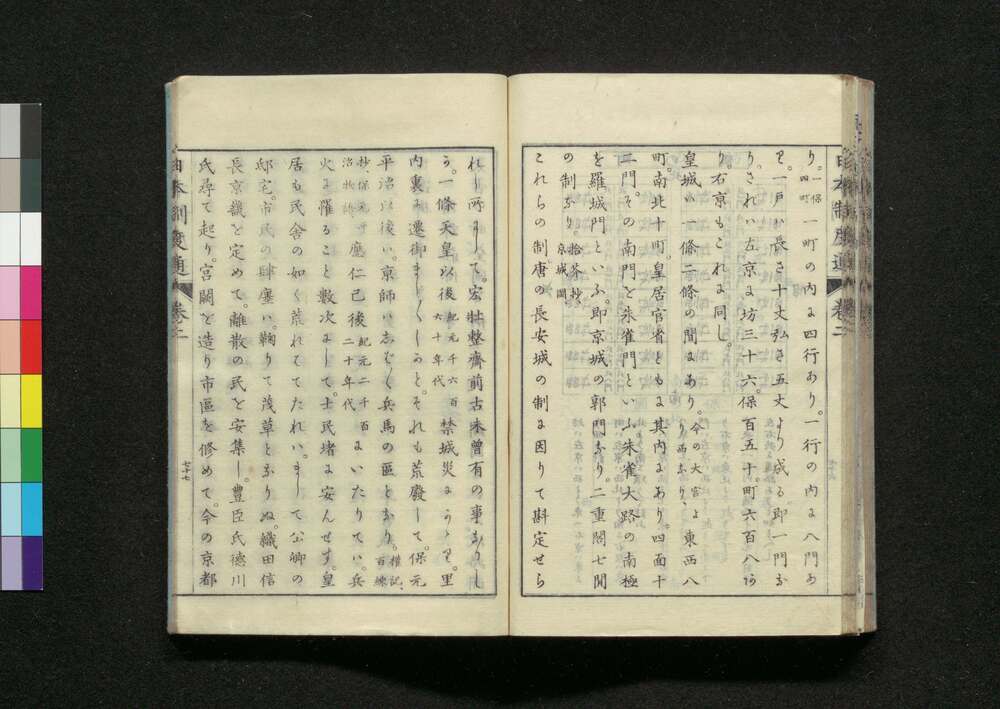 り。一保四町一町の内に四行あり。一行の内に八門あ
り。一戸ハ長さ十丈弘さ五丈より成る即一門な
り。されハ左京は坊三十六。保百五十。町六百八あ
り。右京もこれに同し。
皇城ハ一條二條の間にあり。今の大宮より西なり、東西八
町。南北十町。皇居官省ともに其内にあり。四面十
二門。その南門を朱雀門といふ朱雀大路の南極
を羅城門といふ。即京城の郭門なり。二重閣七間
の制なり。拾芥抄、京城圖
これらの制。唐の長安城の制に因りて斟定せら
日本制度通 巻二
れし所にして。宏壯整齊前古未曾有の事なりし
う。一條天皇以後紀元千六百六十年代禁城災にかゝり。里
内裏に遷御ましくしかと。それも荒廢して。保元
平治以後ハ。京師ハしむく兵馬の區となり。權記、百練
抄、保元平治物語應仁已後紀元二千百二十年代にいたりてハ。兵
火に罹ること數次にして。士民堵に安んせす。皇
居も民舍の如く荒れてたれハ。まして公卿の
邸宅。市民の肆廛ハ。鞠りて茂草となりぬ。織田信
長京畿を定めて。離散の民を安集し。豊臣氏德川
氏尋て起り。宮闕を造り市區を修めて。今の京都
日本制度通 巻二
七十七